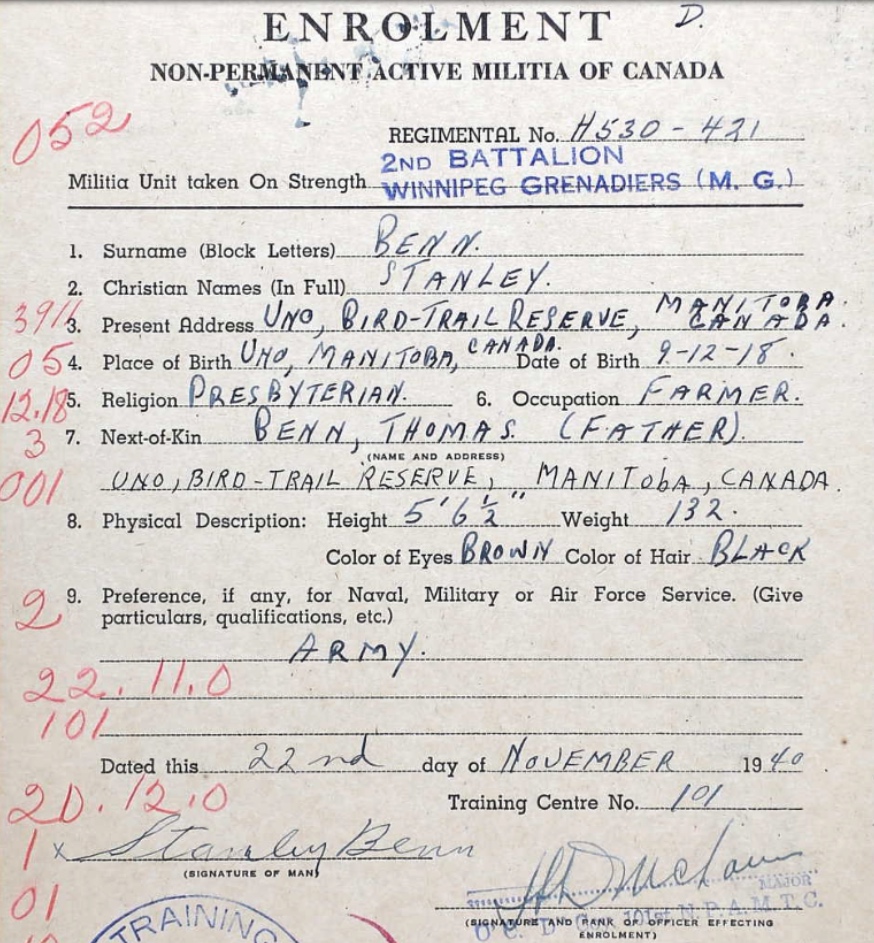 ENROLMENT D.
NON-PERMANENT ACTIVE MILITIA OF CANADA
052
REGIMENTAL No. H530-421
2ND BATTALION
Militia Unit taken On Strength WINNIPEG GRENADIERS (M. G.)
1. Surname (Block Letters) BENN.
2. Christian Names (In Full) STANLEY.
3911 3. Present Address UNO, BIRD-TRAIL RESERVE, MANITOBA. CANADA.
05 4. Place of Birth UNO, MANITOBA, CANADA. Date of Birth 9-12-18.
12.18 5. Religion PRESBYTERIAN. 6. Occupation FARMER.
3 7. Next-of-Kin BENN, THOMAS. (FATHER).
(NAME AND ADDRESS)
001 UNO, BIRD-TRAIL RESERVE, MANITOBA, CANADA.
8. Physical Description: Height 5'6½" Weight 132.
Color of Eyes BROWN Color of Hair BLACK
2 9. Preference, if any, for Naval, Military or Air Force Service. (Give
particulars, qualifications, etc.)
ARMY.
22.11.0
101
Dated this 22nd day of NOVEMBER 1940
20.12.0 Training Centre No. 101
1 x Stanley Benn
(SIGNATURE OF MAN)
01
MAJOR
O.C. "D" Coy. 101st N.P.A.M.T.C.
(SIGNATURE AND RANK OF OFFICER EFFECTING
ENROLMENT)
TRAINING